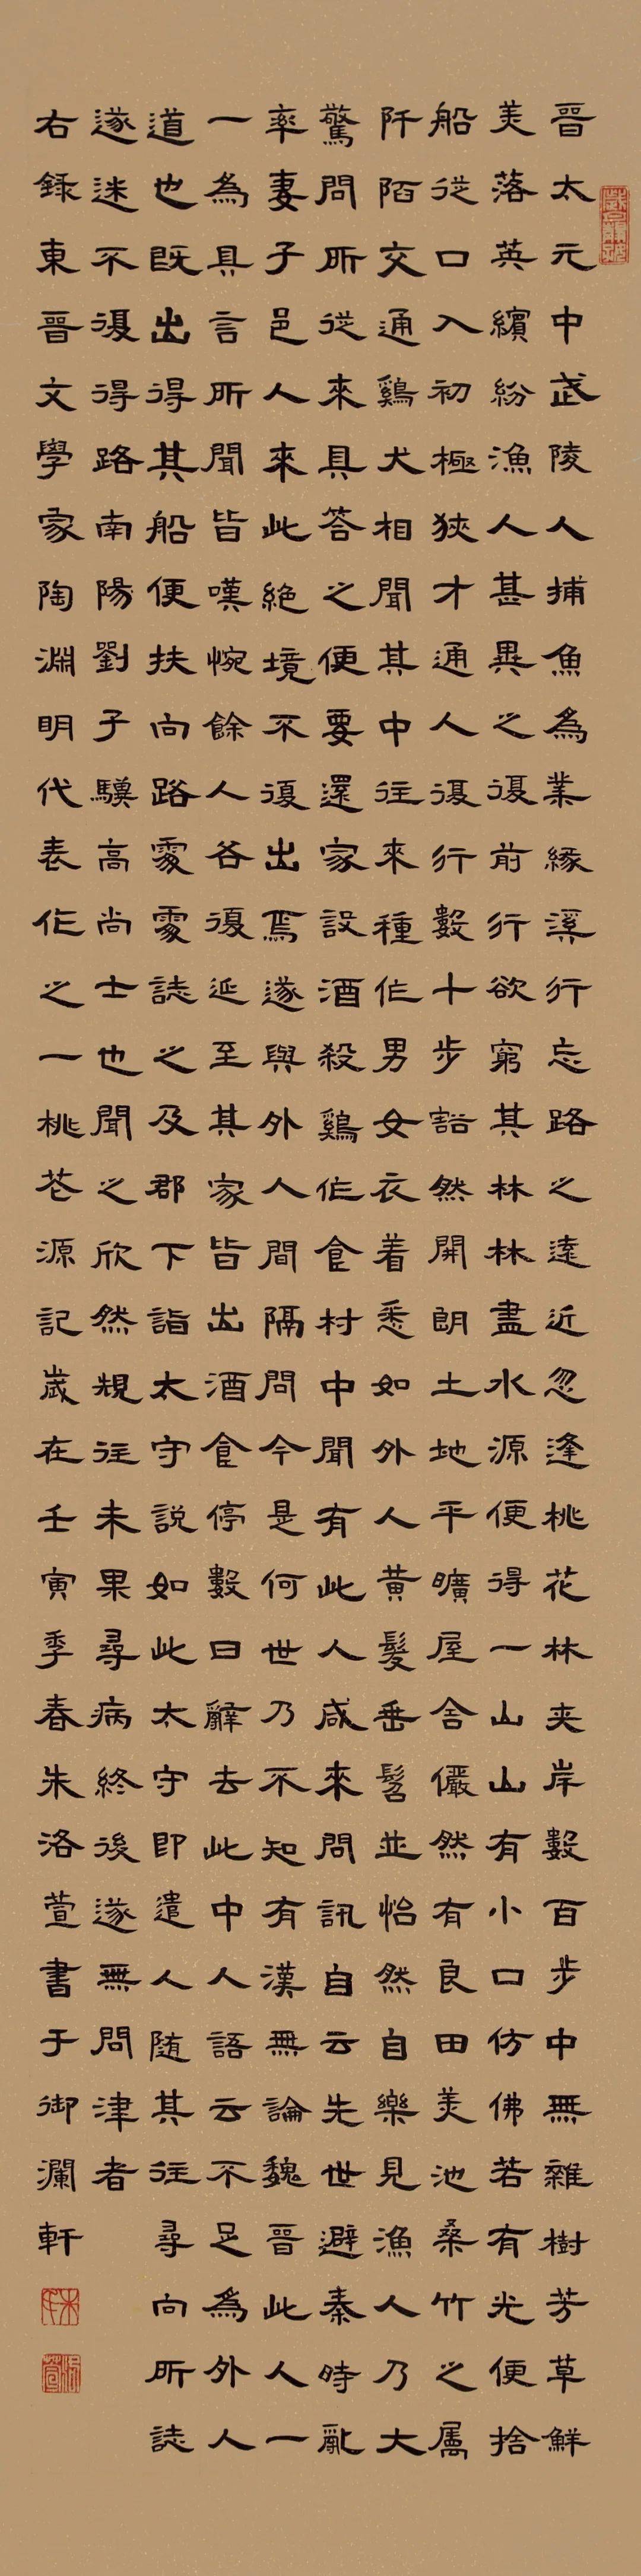 晉太元中武陵人捕魚為業緣溪行忘路之遠近忽逢桃花林夾岸數百步中無雜樹芳草鮮
美落英繽紛漁人甚異之復前行欲窮其林林盡水源便得一山山有小口仿佛若有光便捨
船從口入初極狹才通人復行數十步豁然開朗土地平曠屋舍儼然有良田美池桑竹之屬
阡陌交通鷄犬相聞其中往來種作男女衣着悉如外人黃髮垂髫並怡然自樂見漁人乃大
驚問所從來具答之便要還家設酒殺鷄作食村中聞有此人咸來問訊自云先世避秦時亂
率妻子邑人來此絕境不復出焉遂與外人間隔問今是何世乃不知有漢無論魏晉此人一
一為具言所聞皆嘆惋餘人各復延至其家皆出酒食停數日辭去此中人語云不足為外人
道也既出得其船便扶向路處處誌之及郡下詣太守說如此太守即遣人随其往尋向所誌
遂迷不復得路南陽劉子驥高尚士也聞之欣然規往未果尋病終後遂無問津者
右錄東晉文學家陶淵明代表作之一桃芲源記歲在壬寅季春朱洛萱書于御瀾軒